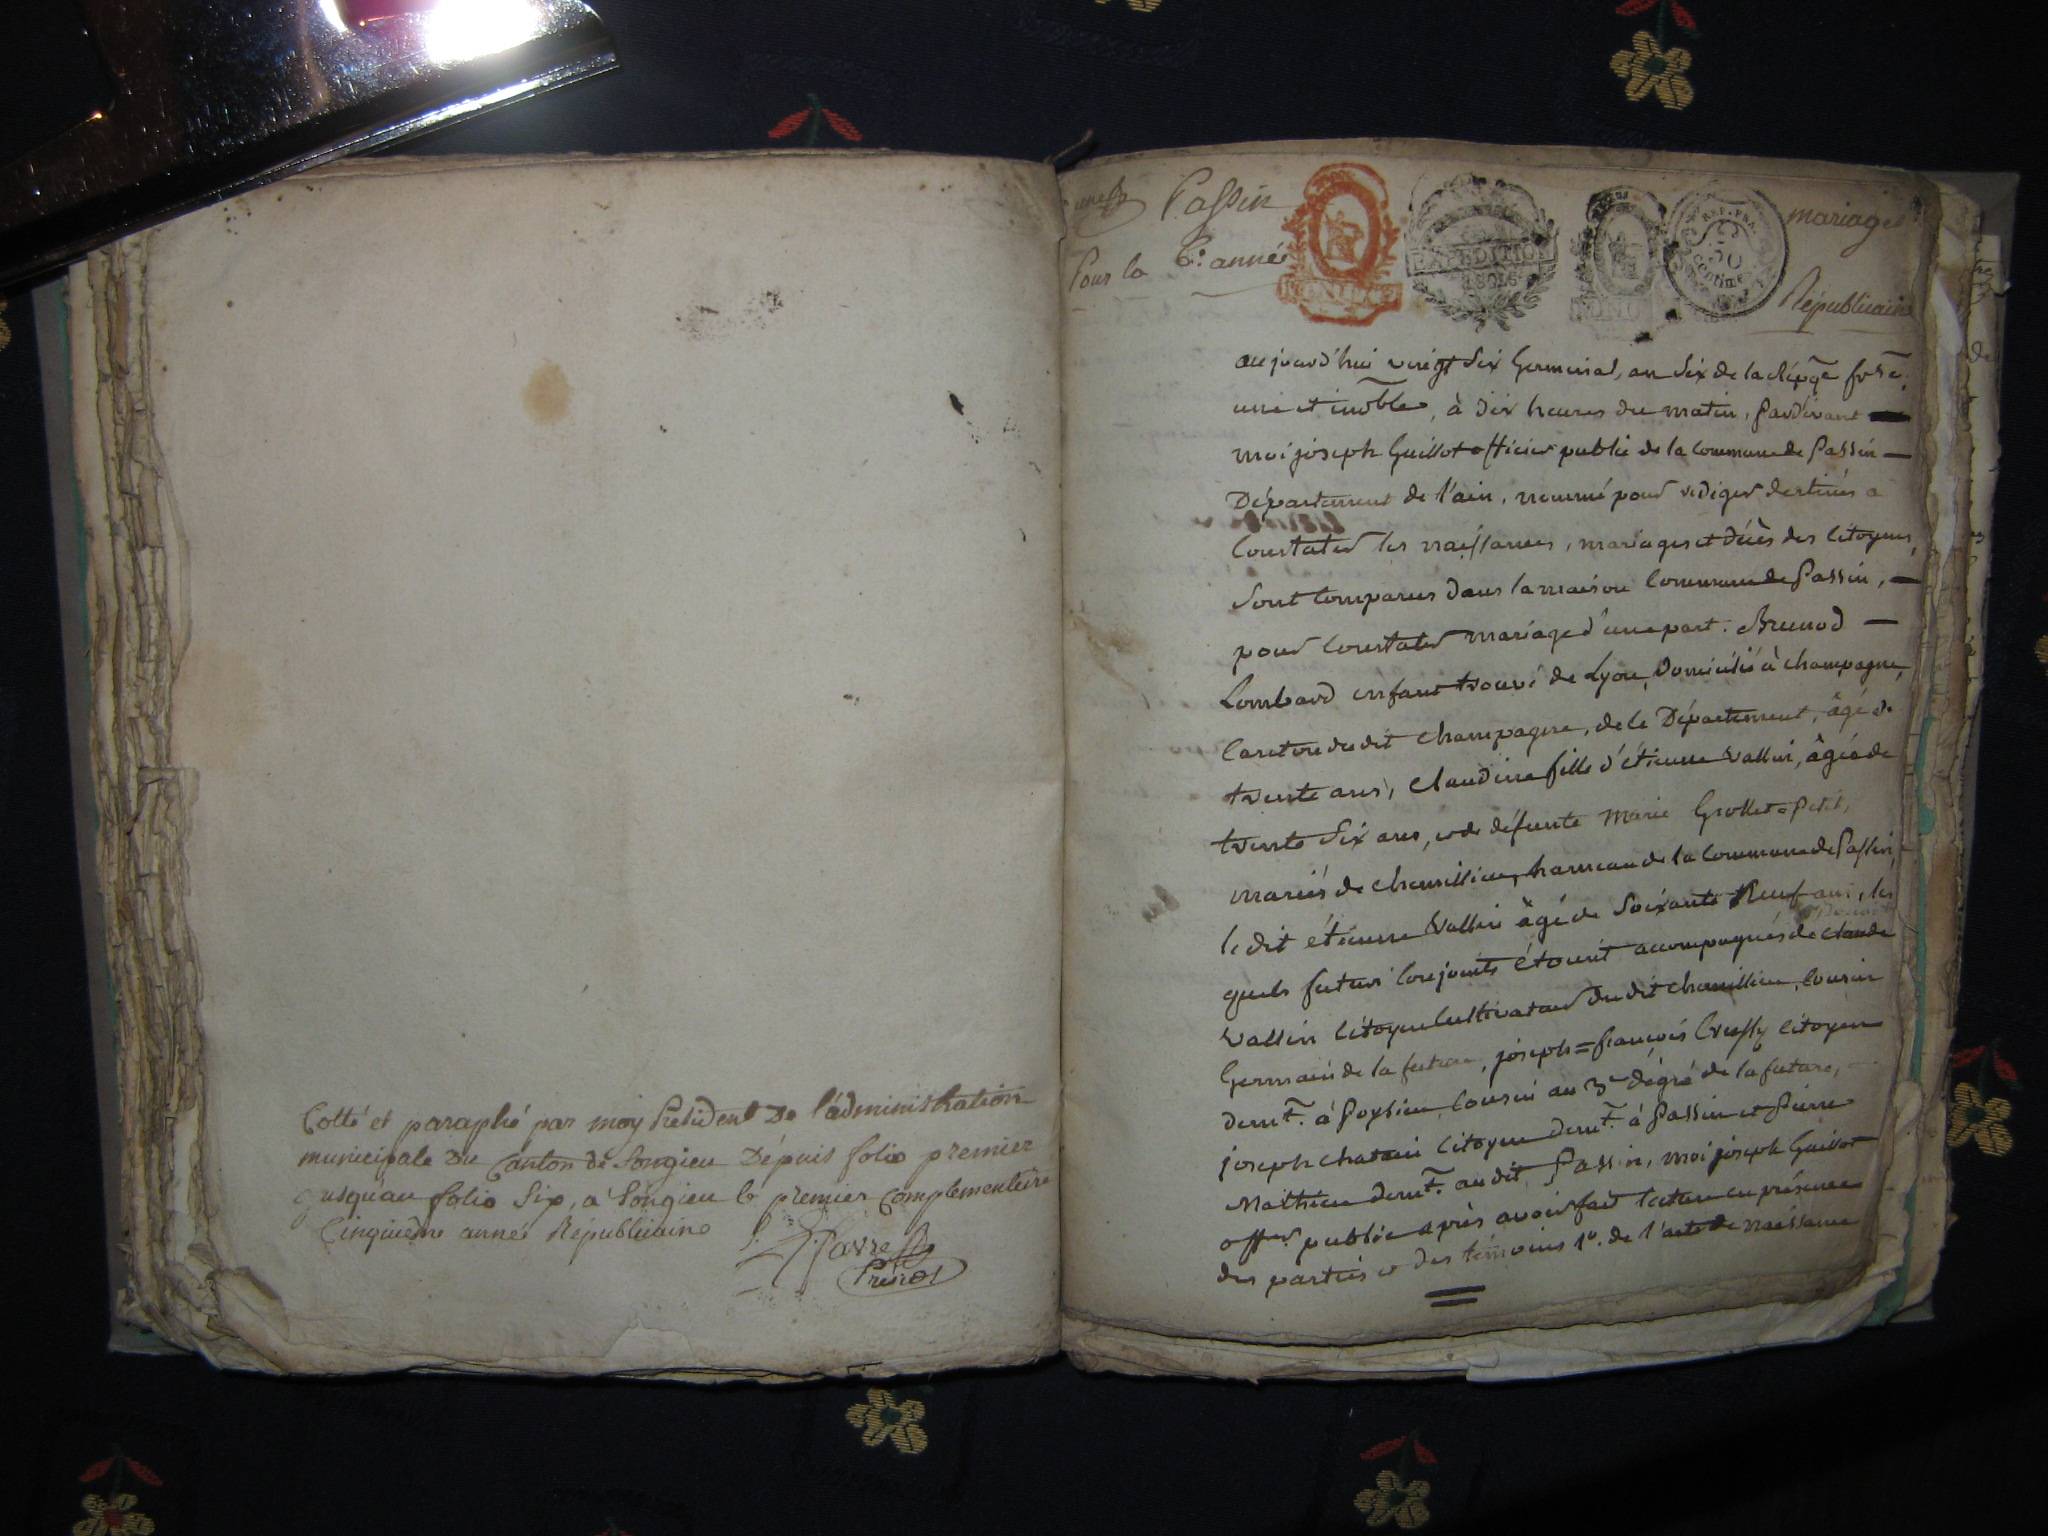 Cotté et paraphé par moy Président De l'administration
municipale Du Canton de Songieu Dépuis folio premier
jusqu'au folio Six, a Songieu le premier Complementaire
Cinquième année Républicaine
Présdt
Passin
mariages
Pour la 6e année
Républicaine
EXPEDITION
REP. FRA.
50
centime
aujourd'hui vingt Six Germinal, an Six de la Répqe frse,
une et indble, à dix heures du matin, pardevant
moi joseph Guillot officier public de la commune de Passin
Département de l'ain, nommé pour rediger destinés a
Constater les naissances, mariages et décès des Citoyens,
Sont Comparus dans la maison Commune de Passin,
pour Constater mariage d'une part. Brunod
Lombard enfant trouvé de Lyon, domicilié à champagne,
Canton du dit champagne, de le Département, âgé de
trente ans, Claudine fille d'étienne Vallin, âgée de
trente Six ans, et de défunte Marie Grollet=Petit,
mariés de chemillieu, hameau de la Commune de Passin,
le dit étienne Vallin âgé de Soixante Neuf ans, les
quels futurs Conjoints étoient accompagnés de claude
Vallin Citoyen Cultivateur du dit chemillieu, Cousin
Germain de la future, joseph=françois Crussy Citoyen
demt. à Poysieu, Cousin au 3e dégré de la future,
joseph chatain Citoyen demt. à Passin et Pierre
Mathieu demt. au dit Passin, moi joseph Guillot
offer public après avoir fait lecture en présence
des parties et des témoins 1o. de l'acte de naissance